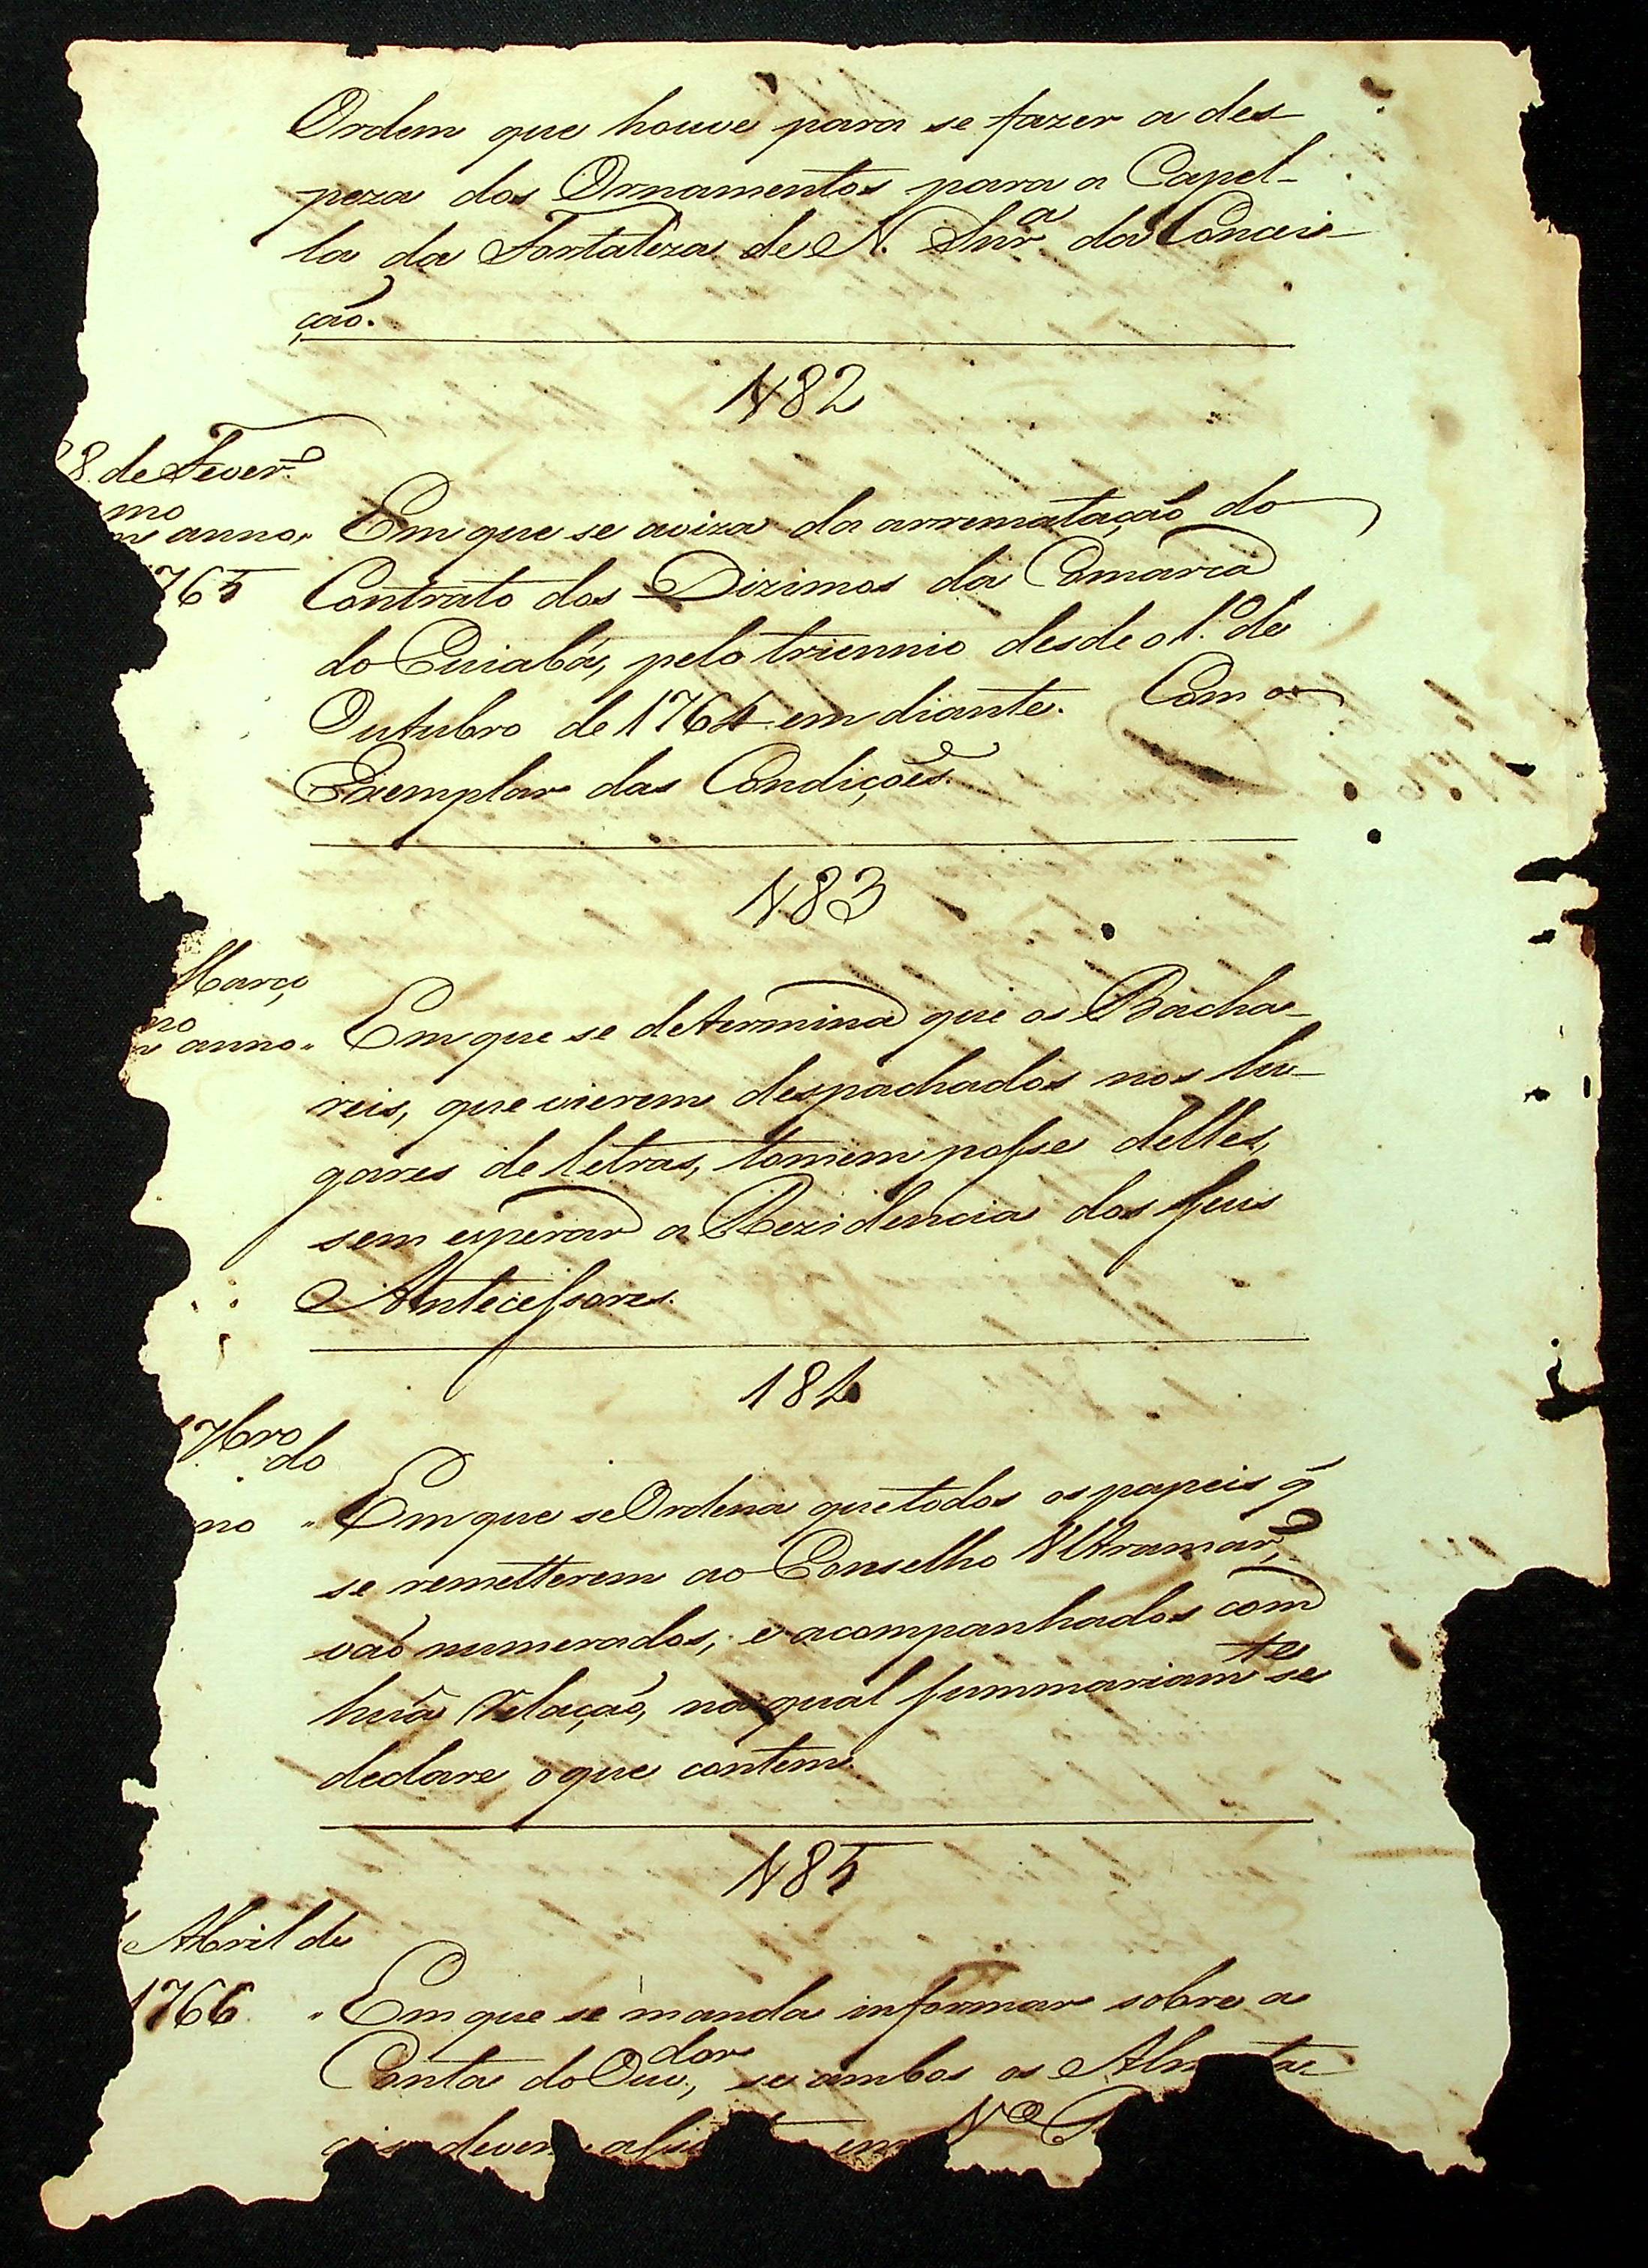 Ordem que houve para se fazer a des-
peza dos Ornamentos para a Capel-
la da Fortaleza de N. Snr.ª da Concei-
ção.
182
28 de Fever.º
mo anno,, Em que se aviza da arrematação do
1765 Contrato dos Dizimos da Comarca
do Cuiabá, pelo triennio desde o 1.º de
Outubro de 1764 em diante. Com o
Exemplar das Condições.
183
Março
mo anno,, Em que se determina que os Bacha-
reis, que vierem despachados nos lu-
gares de letras, tomem posse delles,
sem esperar a Rezidencia dos seus
Antecessores.
184
7bro
do
no ,, Em que se Ordena que todos os papeis q̃
se remetterem ao Conselho Ultramar.º,
vaõ numerados, e acompanhados com
huã relaçaõ, na qual summariam.te se
declare o que contem.
185
Abril de
1766 ,, Em que se manda informar sobre a
Conta do Ouv.dor, se ambos os Almota-
devem em